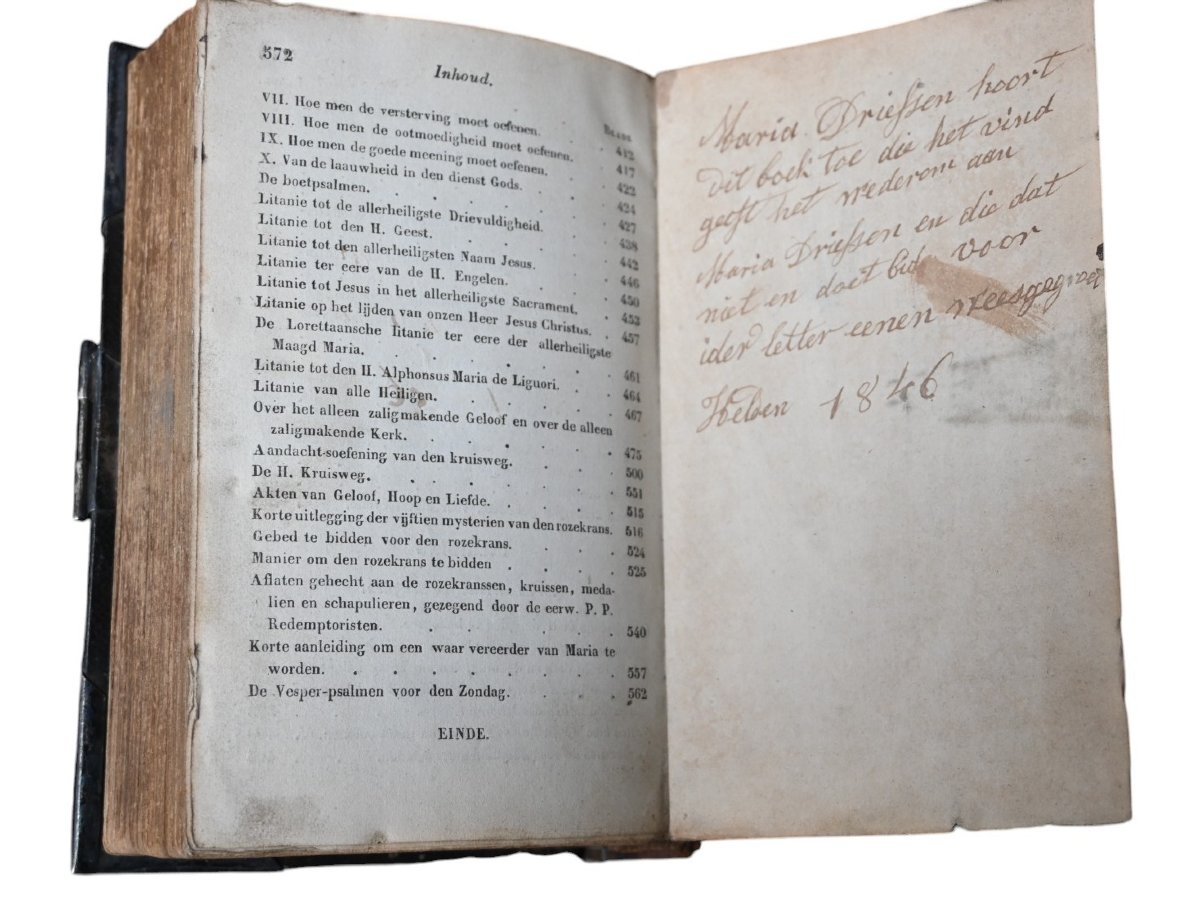 572
Inhoud.
Bladz.
VII. Hoe men de versterving moet oefenen. . . 412
VIII. Hoe men de ootmoedigheid moet oefenen. . 417
IX. Hoe men de goede meening moet oefenen. . 422
X. Van de laauwheid in den dienst Gods. . . 424
De boetpsalmen. . . . . . . 427
Litanie tot de allerheiligste Drievuldigheid. . 438
Litanie tot den H. Geest. . . . . 442
Litanie tot den allerheiligsten Naam Jesus. . 446
Litanie ter eere van de H. Engelen. . . 450
Litanie tot Jesus in het allerheiligste Sacrament. . 453
Litanie op het lijden van onzen Heer Jesus Christus. . 457
De Lorettaansche litanie ter eere der allerheiligste
Maagd Maria. . . . . . . 461
Litanie tot den H. Alphonsus Maria de Liguori. . 464
Litanie van alle Heiligen. . . . . . 467
Over het alleen zaligmakende Geloof en over de alleen
zaligmakende Kerk. . . . . . 475
Aandacht-soefening van den kruisweg. . . . 500
De H. Kruisweg. . . . . . . 551
Akten van Geloof, Hoop en Liefde. . . . 515
Korte uitlegging der vijftien mysterien van den rozekrans. 516
Gebed te bidden voor den rozekrans. . . . 524
Manier om den rozekrans te bidden . . . . 525
Aflaten gehecht aan de rozekranssen, kruissen, meda-
lien en schapulieren, gezegend door de eerw. P. P.
Redemptoristen. . . . . . 540
Korte aanleiding om een waar vereerder van Maria te
worden. . . . . . . . . 557
De Vesper-psalmen voor den Zondag. . . . 562
EINDE.
Maria Driessen hoort
dit boek toe die het vind
geeft het wederom aan
Maria Driessen en die dat
niet en doet bid voor
ider letter eenen
Helden 1846